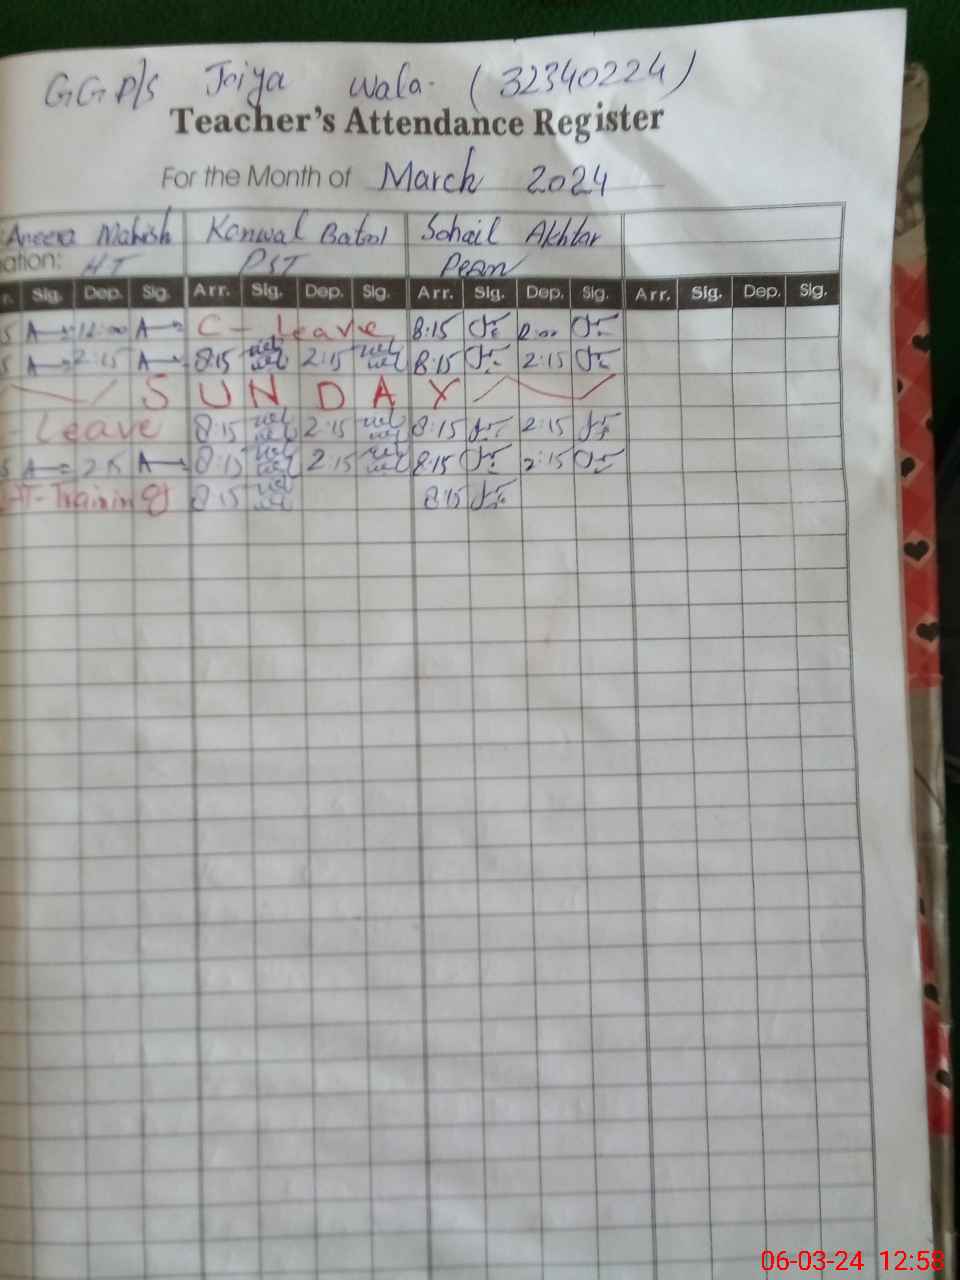 GGP/S Jaiya Wala. (32340224)
Teacher's Attendance Register
For the Month of March 2024
Aneera Mahish Kanwal Batol Sohail Akhtar
ation: HT PST Peon
r. Sig. Dep. Sig. Arr. Sig. Dep. Sig. Arr. Sig. Dep. Sig. Arr. Sig. Dep. Sig.
5 12:00 C- Leave 8:15 12:00
5 2:15 8:15 2:15 8:15 2:15
SUNDAY
- Leave 8:15 2:15 8:15 2:15
5 2:15 8:15 2:15 8:15 2:15
-Training 8:15 8:15
06-03-24 12:58